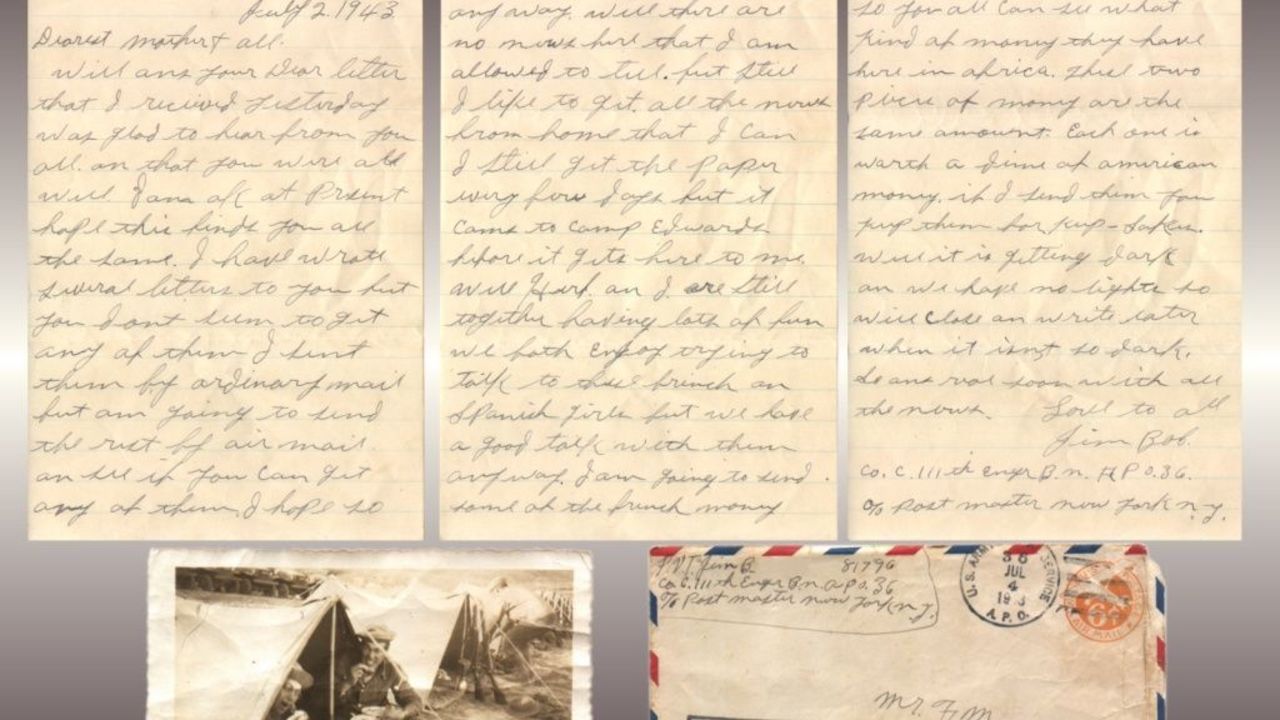 July 2. 1943
Dearest Mother & all.
will ans your Dear letter
that I recieved yesterday
was glad to hear from you
all. an that you were all
well I am ok at Present
hope this finds you all
the same. I have wrote
several letters to you but
you dont seem to get
any of them I sent
them by ordinary mail
but am going to send
the rest by air mail.
an see if you can get
any of them I hope so
anyway. well there are
no news here that I am
allowed to tell. but still
I like to get all the news
from home that I can
I still get the Paper
every few days but it
came to Camp Edwards
before it gets here to me
well Herb. an I. are still
together having lots of fun
we both Enjoy trying to
talk to these french an
Spanish girls but we have
a good talk with them
anyway. I am going to send.
some of the french money
so you all can see what
kind of money they have
here in africa. these two
pieces of money are the
same amount. Each one is
worth a dime of american
money. if I send them you
keep them for keep-sakes.
well it is getting dark
an we have no lights so
will close an write later
when it isnt so dark.
so ans real soon with all
the news. Love to all
Jim Bob.
Co. C. 111th Engr B.n. A P O. 36.
c/o Post master new York n.y.
P.V.T. Jim B. 81796
Co C. 111th Engr B.n. a.p.o. 36
c/o Post master new York n.y.
U.S. ARMY SERVICE
JUL
4
A.P.O.
6¢
AIR MAIL
Mr. F. M.